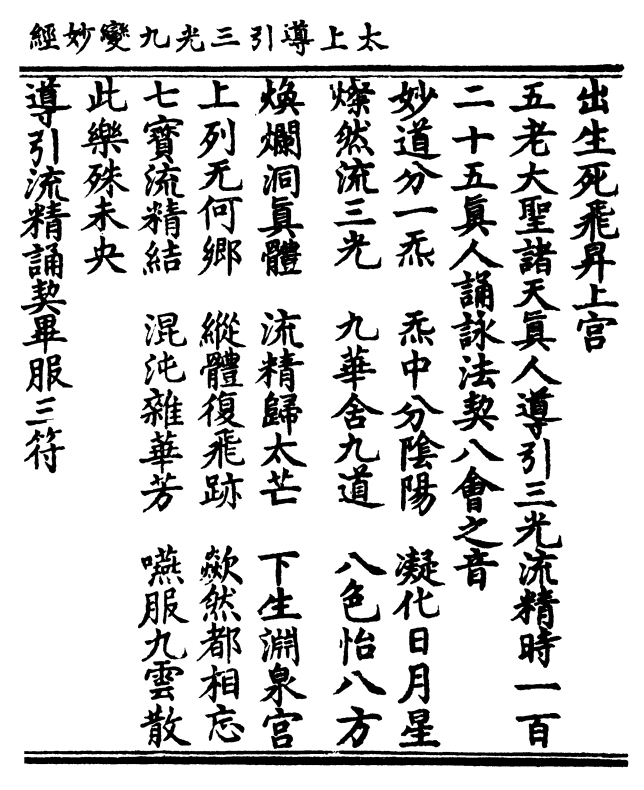 太上導引三光九變妙經
出生死飛昇上宮
五老大聖諸天眞人導引三光流精時一百
二十五眞人誦詠法契八會之音
妙道分一炁 炁中分陰陽 凝化日月星
燦然流三光 九華舍九道 八色怡八方
煥爛洞眞體 流精歸太芒 下生淵泉宮
上列无何鄉 縱體復飛跡 歘然都相忘
七寶流精結 混沌雜華芳 嚥服九雲散
此樂殊未央
導引流精誦契畢服三符